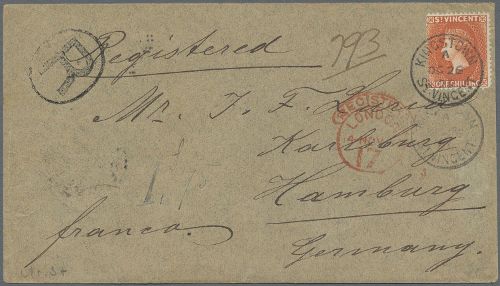 Registered
793
R
ST VINCENT
ONE SHILLING
KINGSTOWN
A
OC 26
ST. VINCENT
Mr. J. F.
REGISTERED
LONDON
4 NOV
VINCENT
Karlsburg
Hamburg
franco.
Germany.